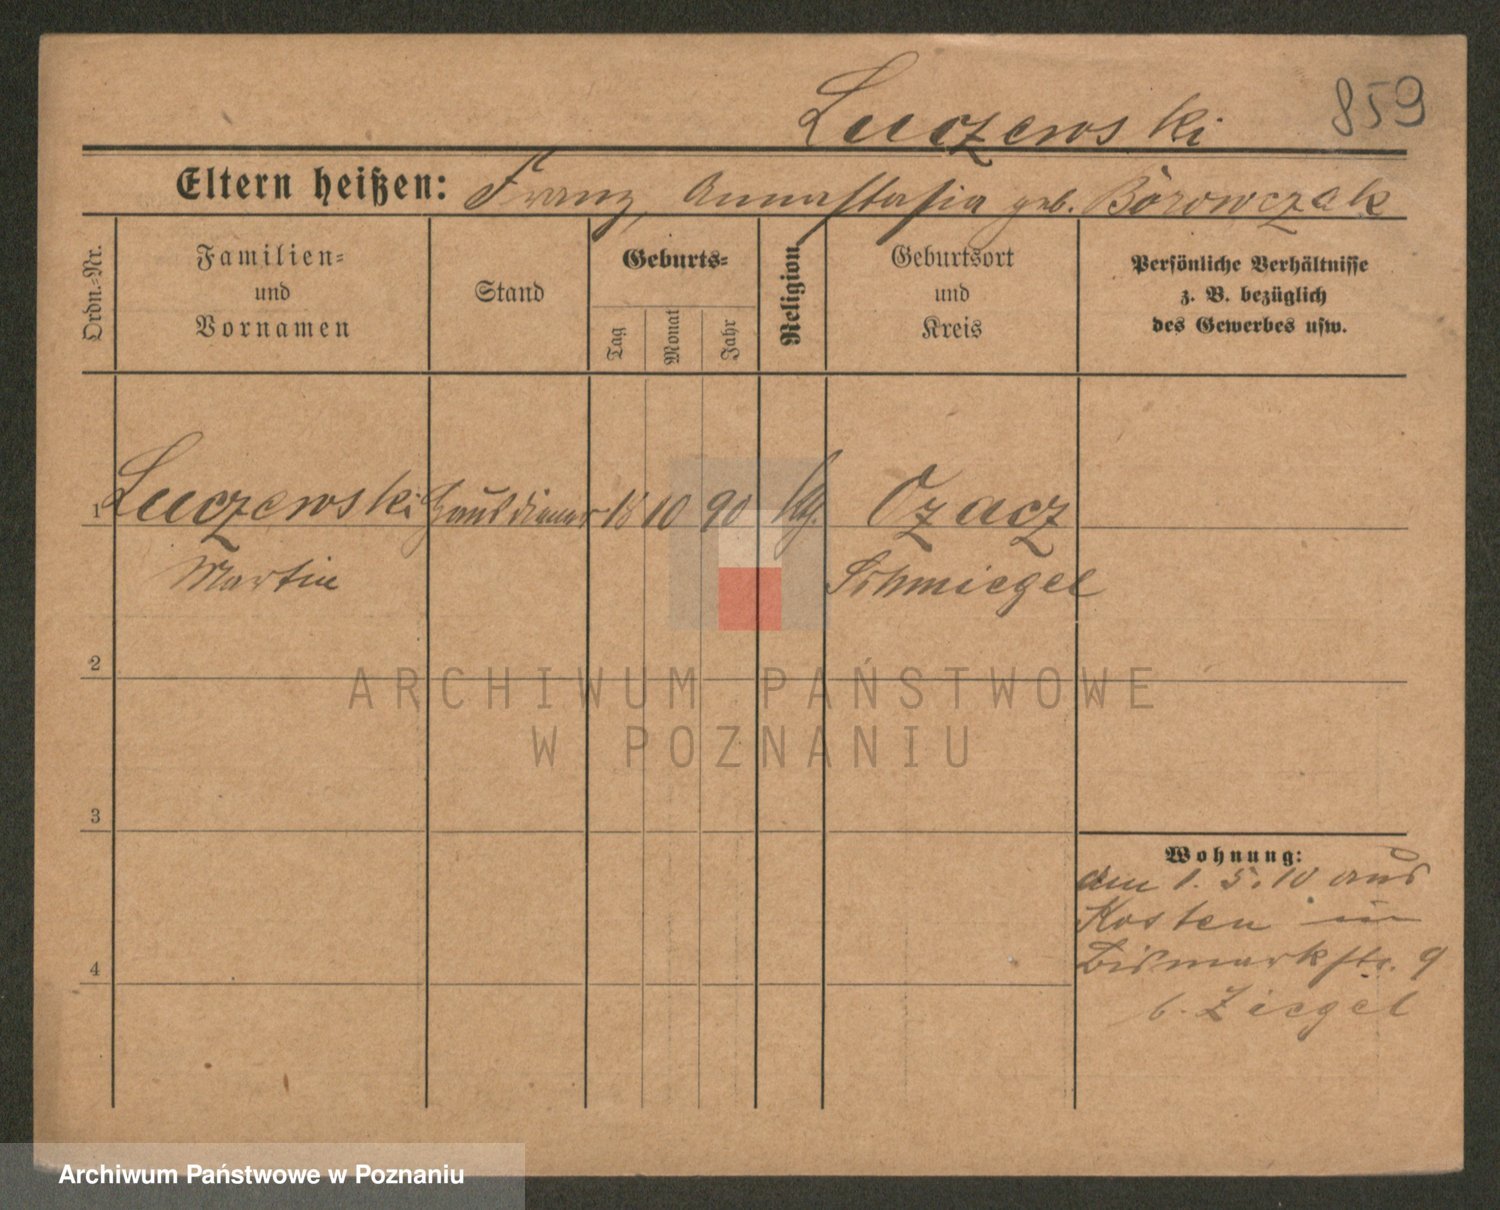 Luczewski 859
Eltern heißen: Franz, Annastasia geb. Borowczak
Ordn.-Nr.
Familien-
und
Vornamen
Stand
Geburts-
Tag
Monat
Jahr
Religion
Geburtsort
und
Kreis
Persönliche Verhältnisse
z. B. bezüglich
des Gewerbes usw.
1 Luczewski Hausdiener 18 10 90 kg. Czacz
Martin Schmiegel
2
3
4
Wohnung:
am 1. 5. 10 aus
Kosten in
Bismarkstr. 9
b. Ziegel
ARCHIWUM PAŃSTWOWE
W POZNANIU
Archiwum Państwowe w Poznaniu